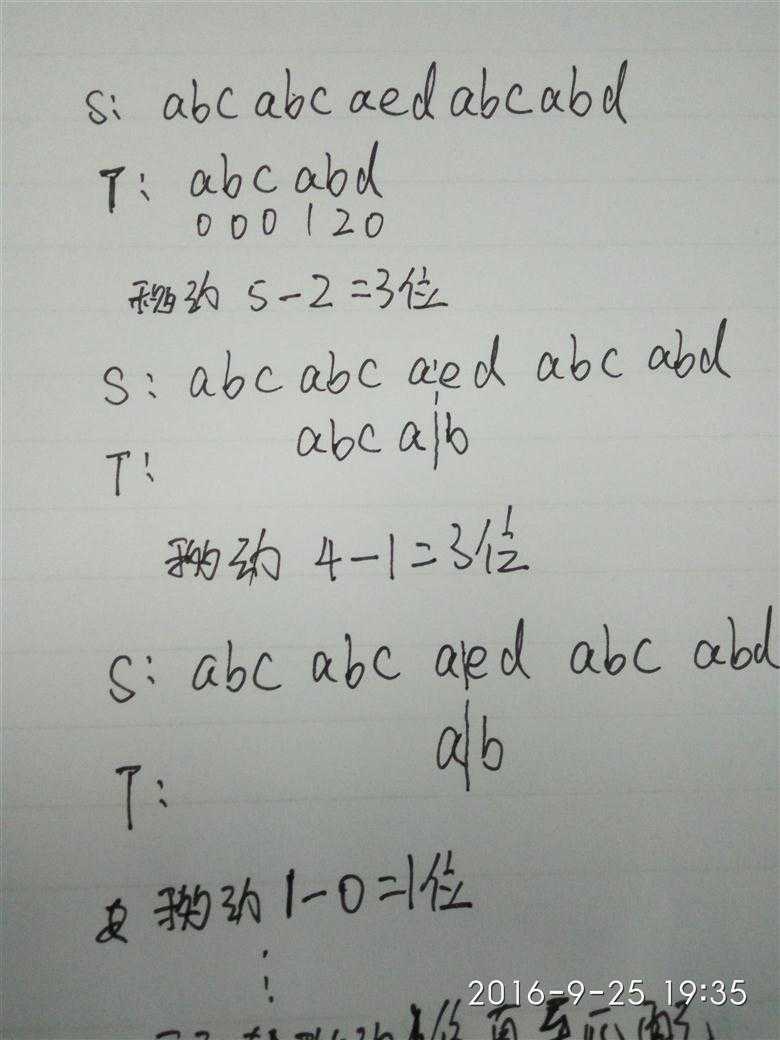 S: abc abc aed abcabd
T: abc abd
0 0 0 1 2 0
移动 5-2=3位
S: abc abc aed abc abd
abc a|b
T:
移动 4-1=3位
S: abc abc a|ed abc abd
a|b
T:
移动 1-0=1位
⋮
2016-9-25 19:35